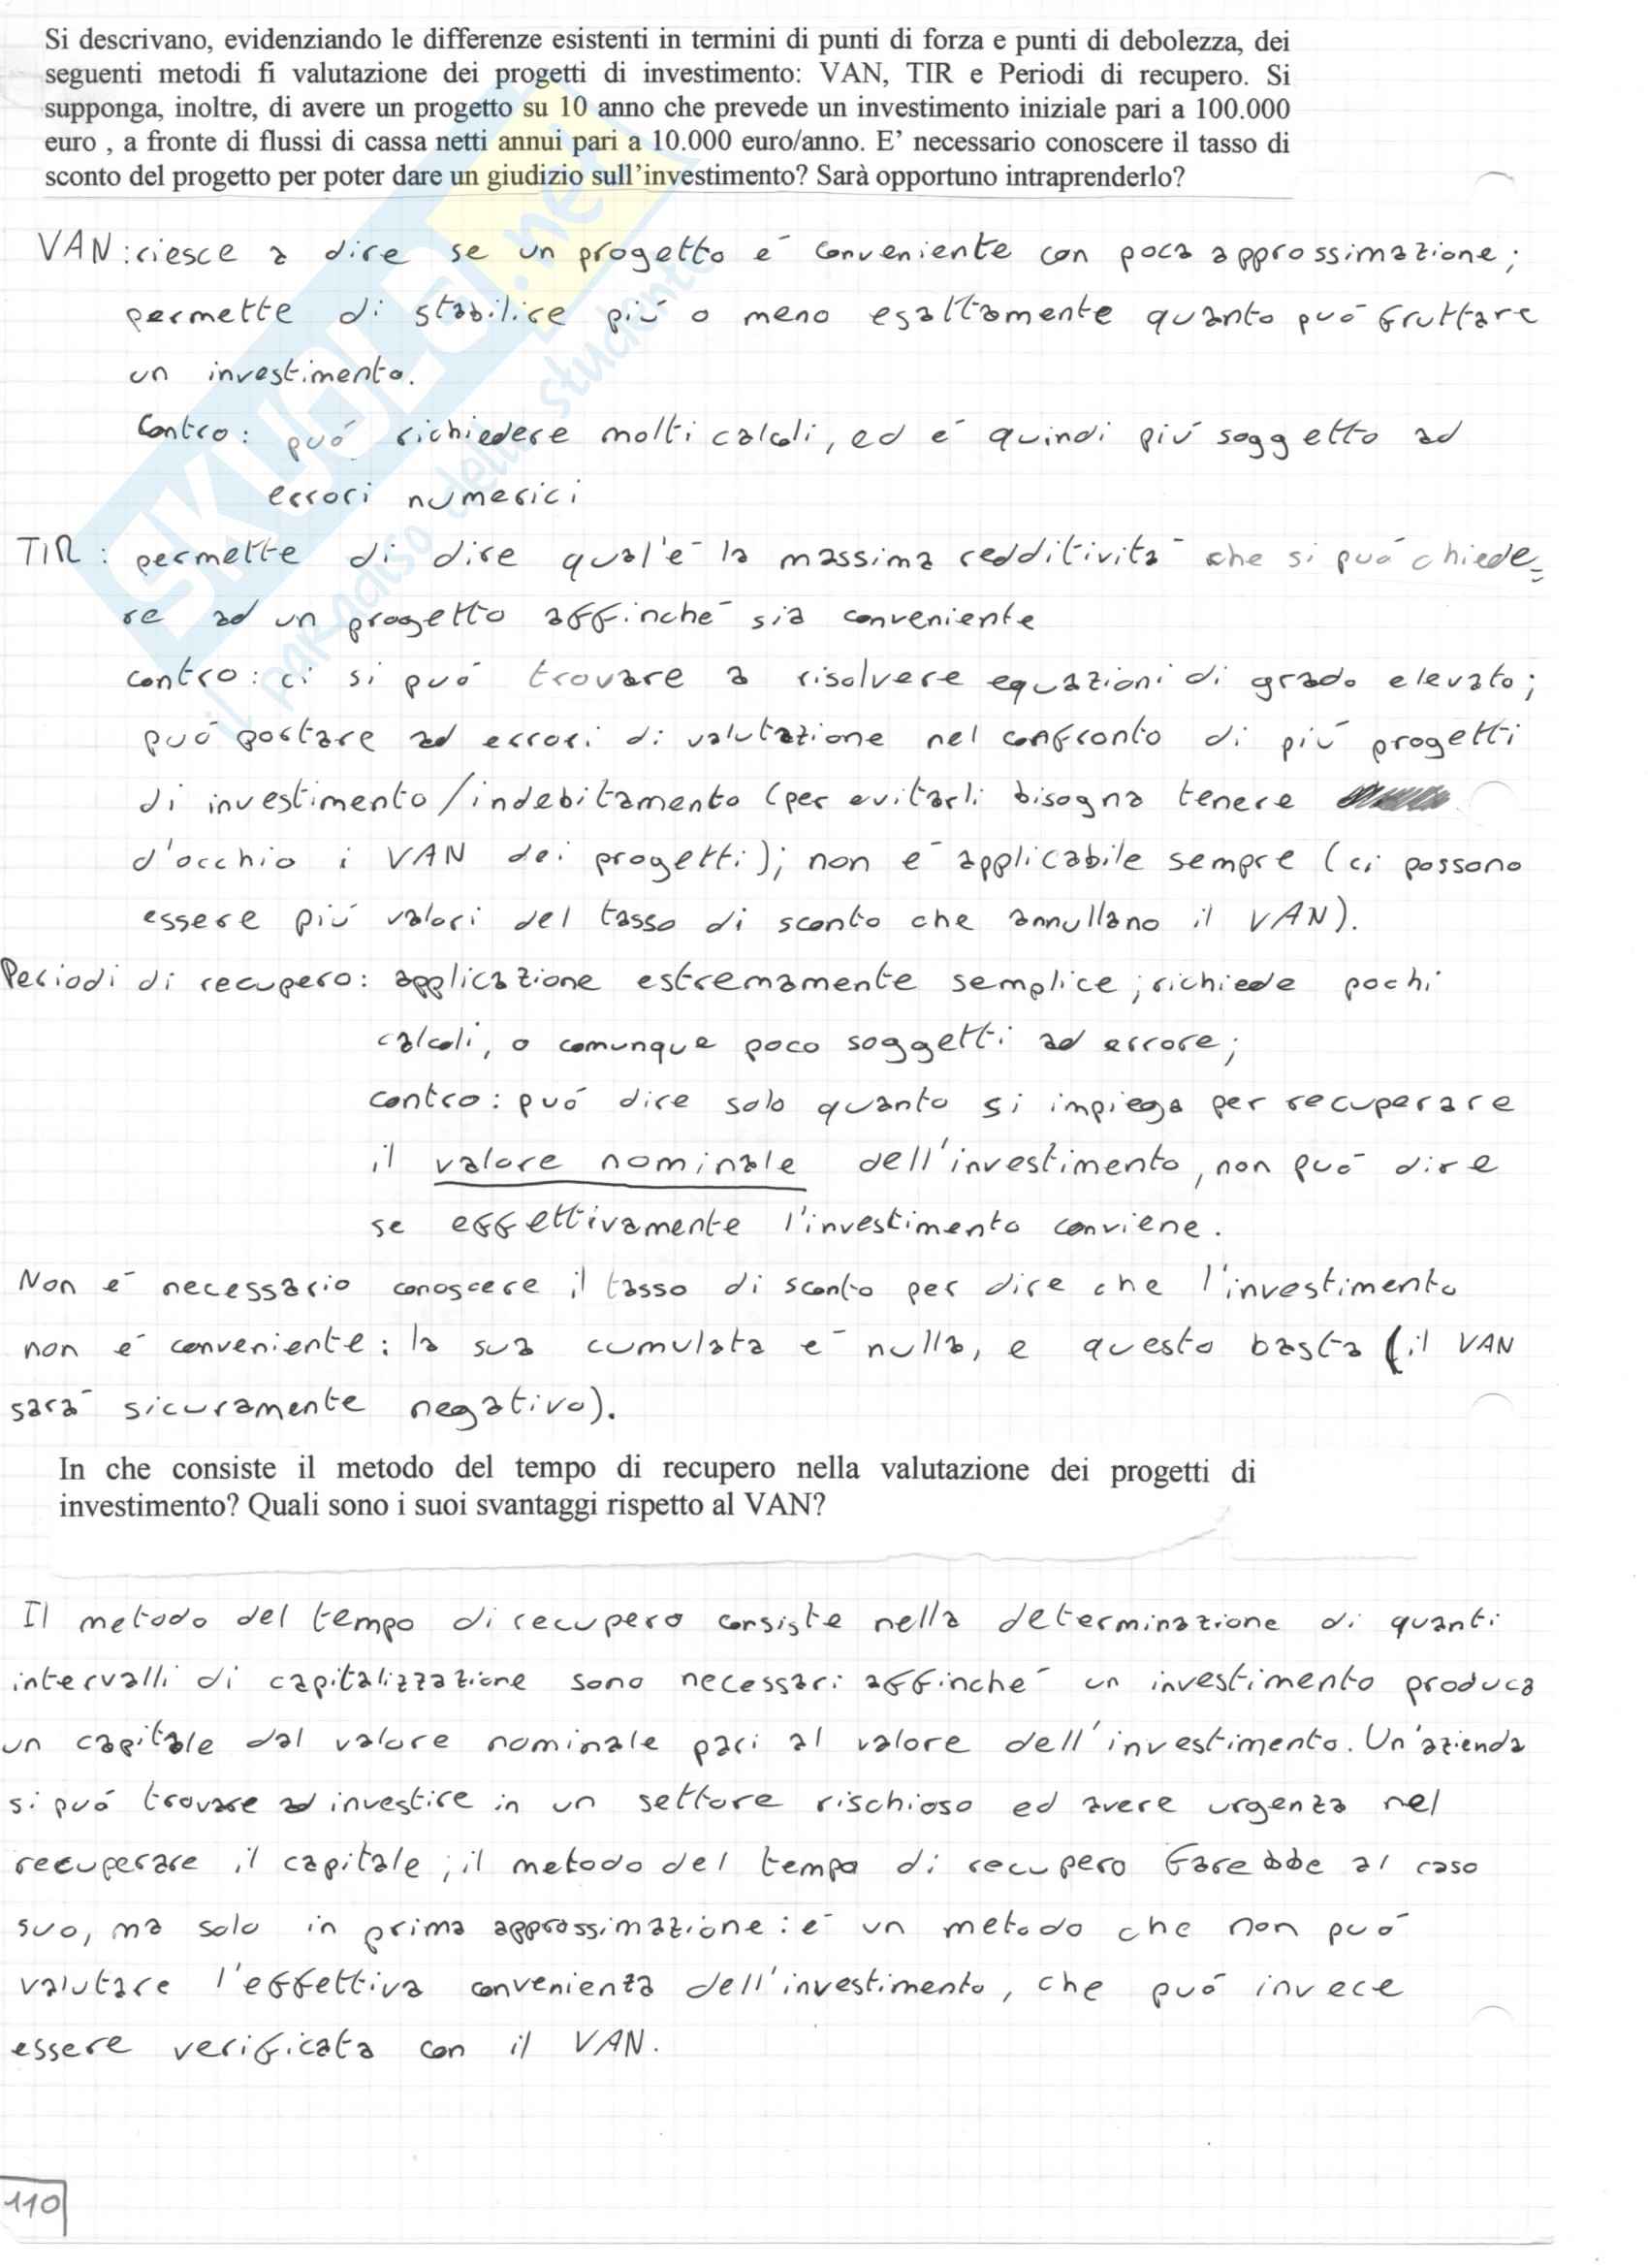 Si descrivano, evidenziando le differenze esistenti in termini di punti di forza e punti di debolezza, dei
seguenti metodi fi valutazione dei progetti di investimento: VAN, TIR e Periodi di recupero. Si
supponga, inoltre, di avere un progetto su 10 anno che prevede un investimento iniziale pari a 100.000
euro , a fronte di flussi di cassa netti annui pari a 10.000 euro/anno. E' necessario conoscere il tasso di
sconto del progetto per poter dare un giudizio sull'investimento? Sarà opportuno intraprenderlo?
VAN: riesce a dire se un progetto è conveniente con poca approssimazione;
permette di stabilire più o meno esattamente quanto può fruttare
un investimento.
Contro: può richiedere molti calcoli, ed è quindi più soggetto ad
errori numerici
TIR: permette di dire qual'è la massima redditività che si può chiede=
re ad un progetto affinché sia conveniente
contro: ci si può trovare a risolvere equazioni di grado elevato;
può portare ad errori di valutazione nel confronto di più progetti
di investimento/indebitamento (per evitarli bisogna tenere
d'occhio i VAN dei progetti); non è applicabile sempre (ci possono
essere più valori del tasso di sconto che annullano il VAN).
Periodi di recupero: applicazione estremamente semplice; richiede pochi
calcoli, o comunque poco soggetti ad errore;
contro: può dire solo quanto si impiega per recuperare
il valore nominale dell'investimento, non può dire
se effettivamente l'investimento conviene.
Non è necessario conoscere il tasso di sconto per dire che l'investimento
non è conveniente: la sua cumulata è nulla, e questo basta (il VAN
sarà sicuramente negativo).
In che consiste il metodo del tempo di recupero nella valutazione dei progetti di
investimento? Quali sono i suoi svantaggi rispetto al VAN?
Il metodo del tempo di recupero consiste nella determinazione di quanti
intervalli di capitalizzazione sono necessari affinché un investimento produca
un capitale dal valore nominale pari al valore dell'investimento. Un'azienda
si può trovare ad investire in un settore rischioso ed avere urgenza nel
recuperare il capitale; il metodo del tempo di recupero farebbe al caso
suo, ma solo in prima approssimazione: è un metodo che non può
valutare l'effettiva convenienza dell'investimento, che può invece
essere verificata con il VAN.
110
SKUOLA.net
il paradiso dello studente